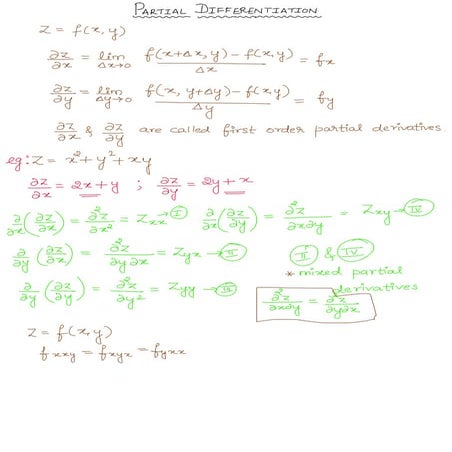 PARTIAL DIFFERENTIATION
z = f(x, y)
∂z/∂x = lim Δx→0 (f(x+Δx, y) − f(x, y))/Δx = fx
∂z/∂y = lim Δy→0 (f(x, y+Δy) − f(x, y))/Δy = fy
∂z/∂x & ∂z/∂y are called first order partial derivatives.
eg: z = x² + y² + xy
∂z/∂x = 2x + y ; ∂z/∂y = 2y + x
∂/∂x (∂z/∂x) = ∂²z/∂x² = Zxx → I
∂/∂x (∂z/∂y) = ∂²z/∂x∂y = Zxy → IV
∂/∂y (∂z/∂x) = ∂²z/∂y∂x = Zyx → II
II & IV
* mixed partial derivatives
∂/∂y (∂z/∂y) = ∂²z/∂y² = Zyy → III
∂²z/∂x∂y = ∂²z/∂y∂x
z = f(x, y)
fxxy = fxyx = fyxx